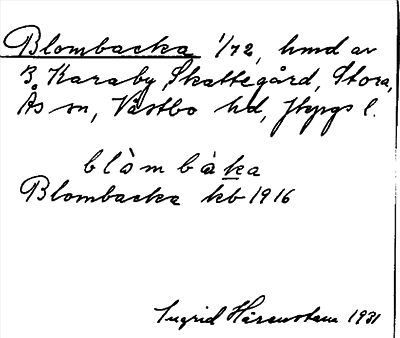 Blombacka 1/72, hmd av
3 Karaby, Skattegård, Stora,
Ås sn, Västbo hd, Jkpgs l.
blòm bàka
Blombacka kb 1916
Ingrid 1931